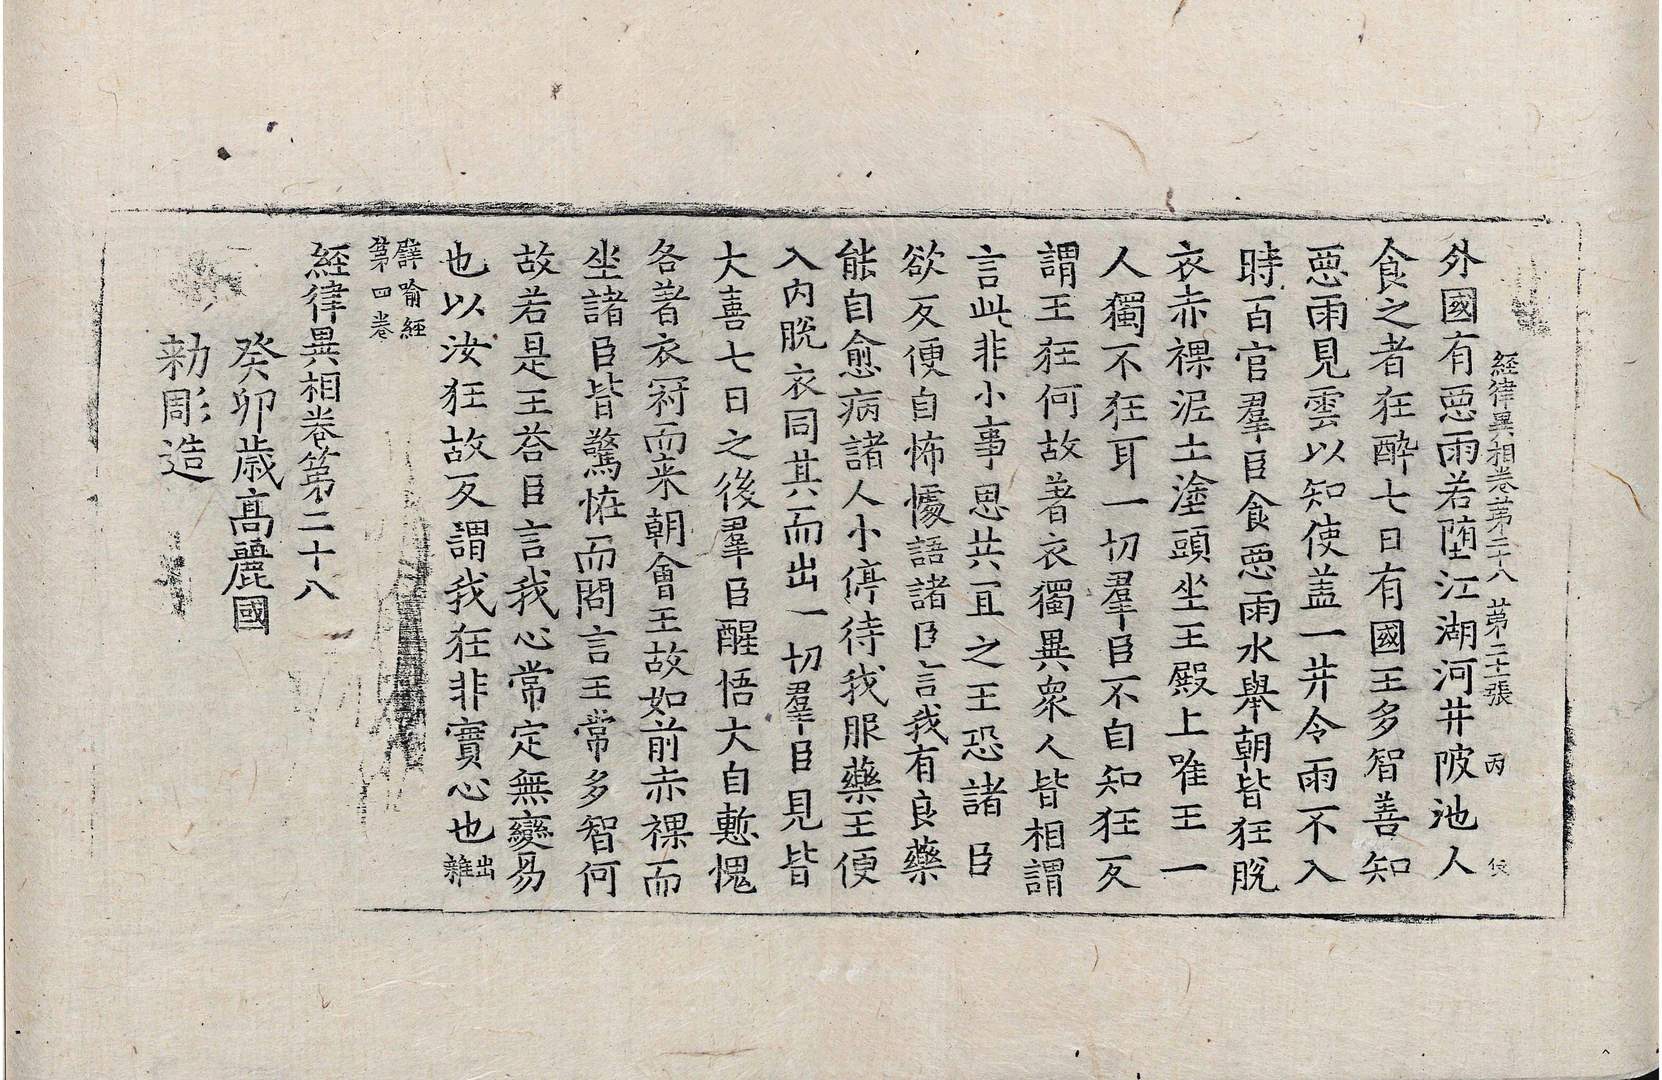 経律異相卷第二十八 第二十二張 丙
外國有惡雨若堕江湖河井陂池人
食之者狂醉七日有國王多智善知
惡雨見雲以知使盖一井令雨不入
時百官羣臣食惡雨水舉朝皆狂脫
衣赤裸泥土塗頭坐王殿上唯王一
人獨不狂耳一切羣臣不自知狂反
謂王狂何故著衣獨異衆人皆相謂
言此非小事思共冝之王恐諸臣
欲反便自怖懅語諸臣言我有良藥
能自愈病諸人小停待我服藥王便
入内脫衣同其而出一切羣臣見皆
大喜七日之後羣臣醒悟大自慙愧
各著衣冠而来朝會王故如前赤裸而
坐諸臣皆驚恠而問言王常多智何
故若是王荅臣言我心常定無變易
也以汝狂故反謂我狂非實心也出雜
譬喻経
第四卷
経律異相卷第二十八
癸卯歳高麗國
勑彫造